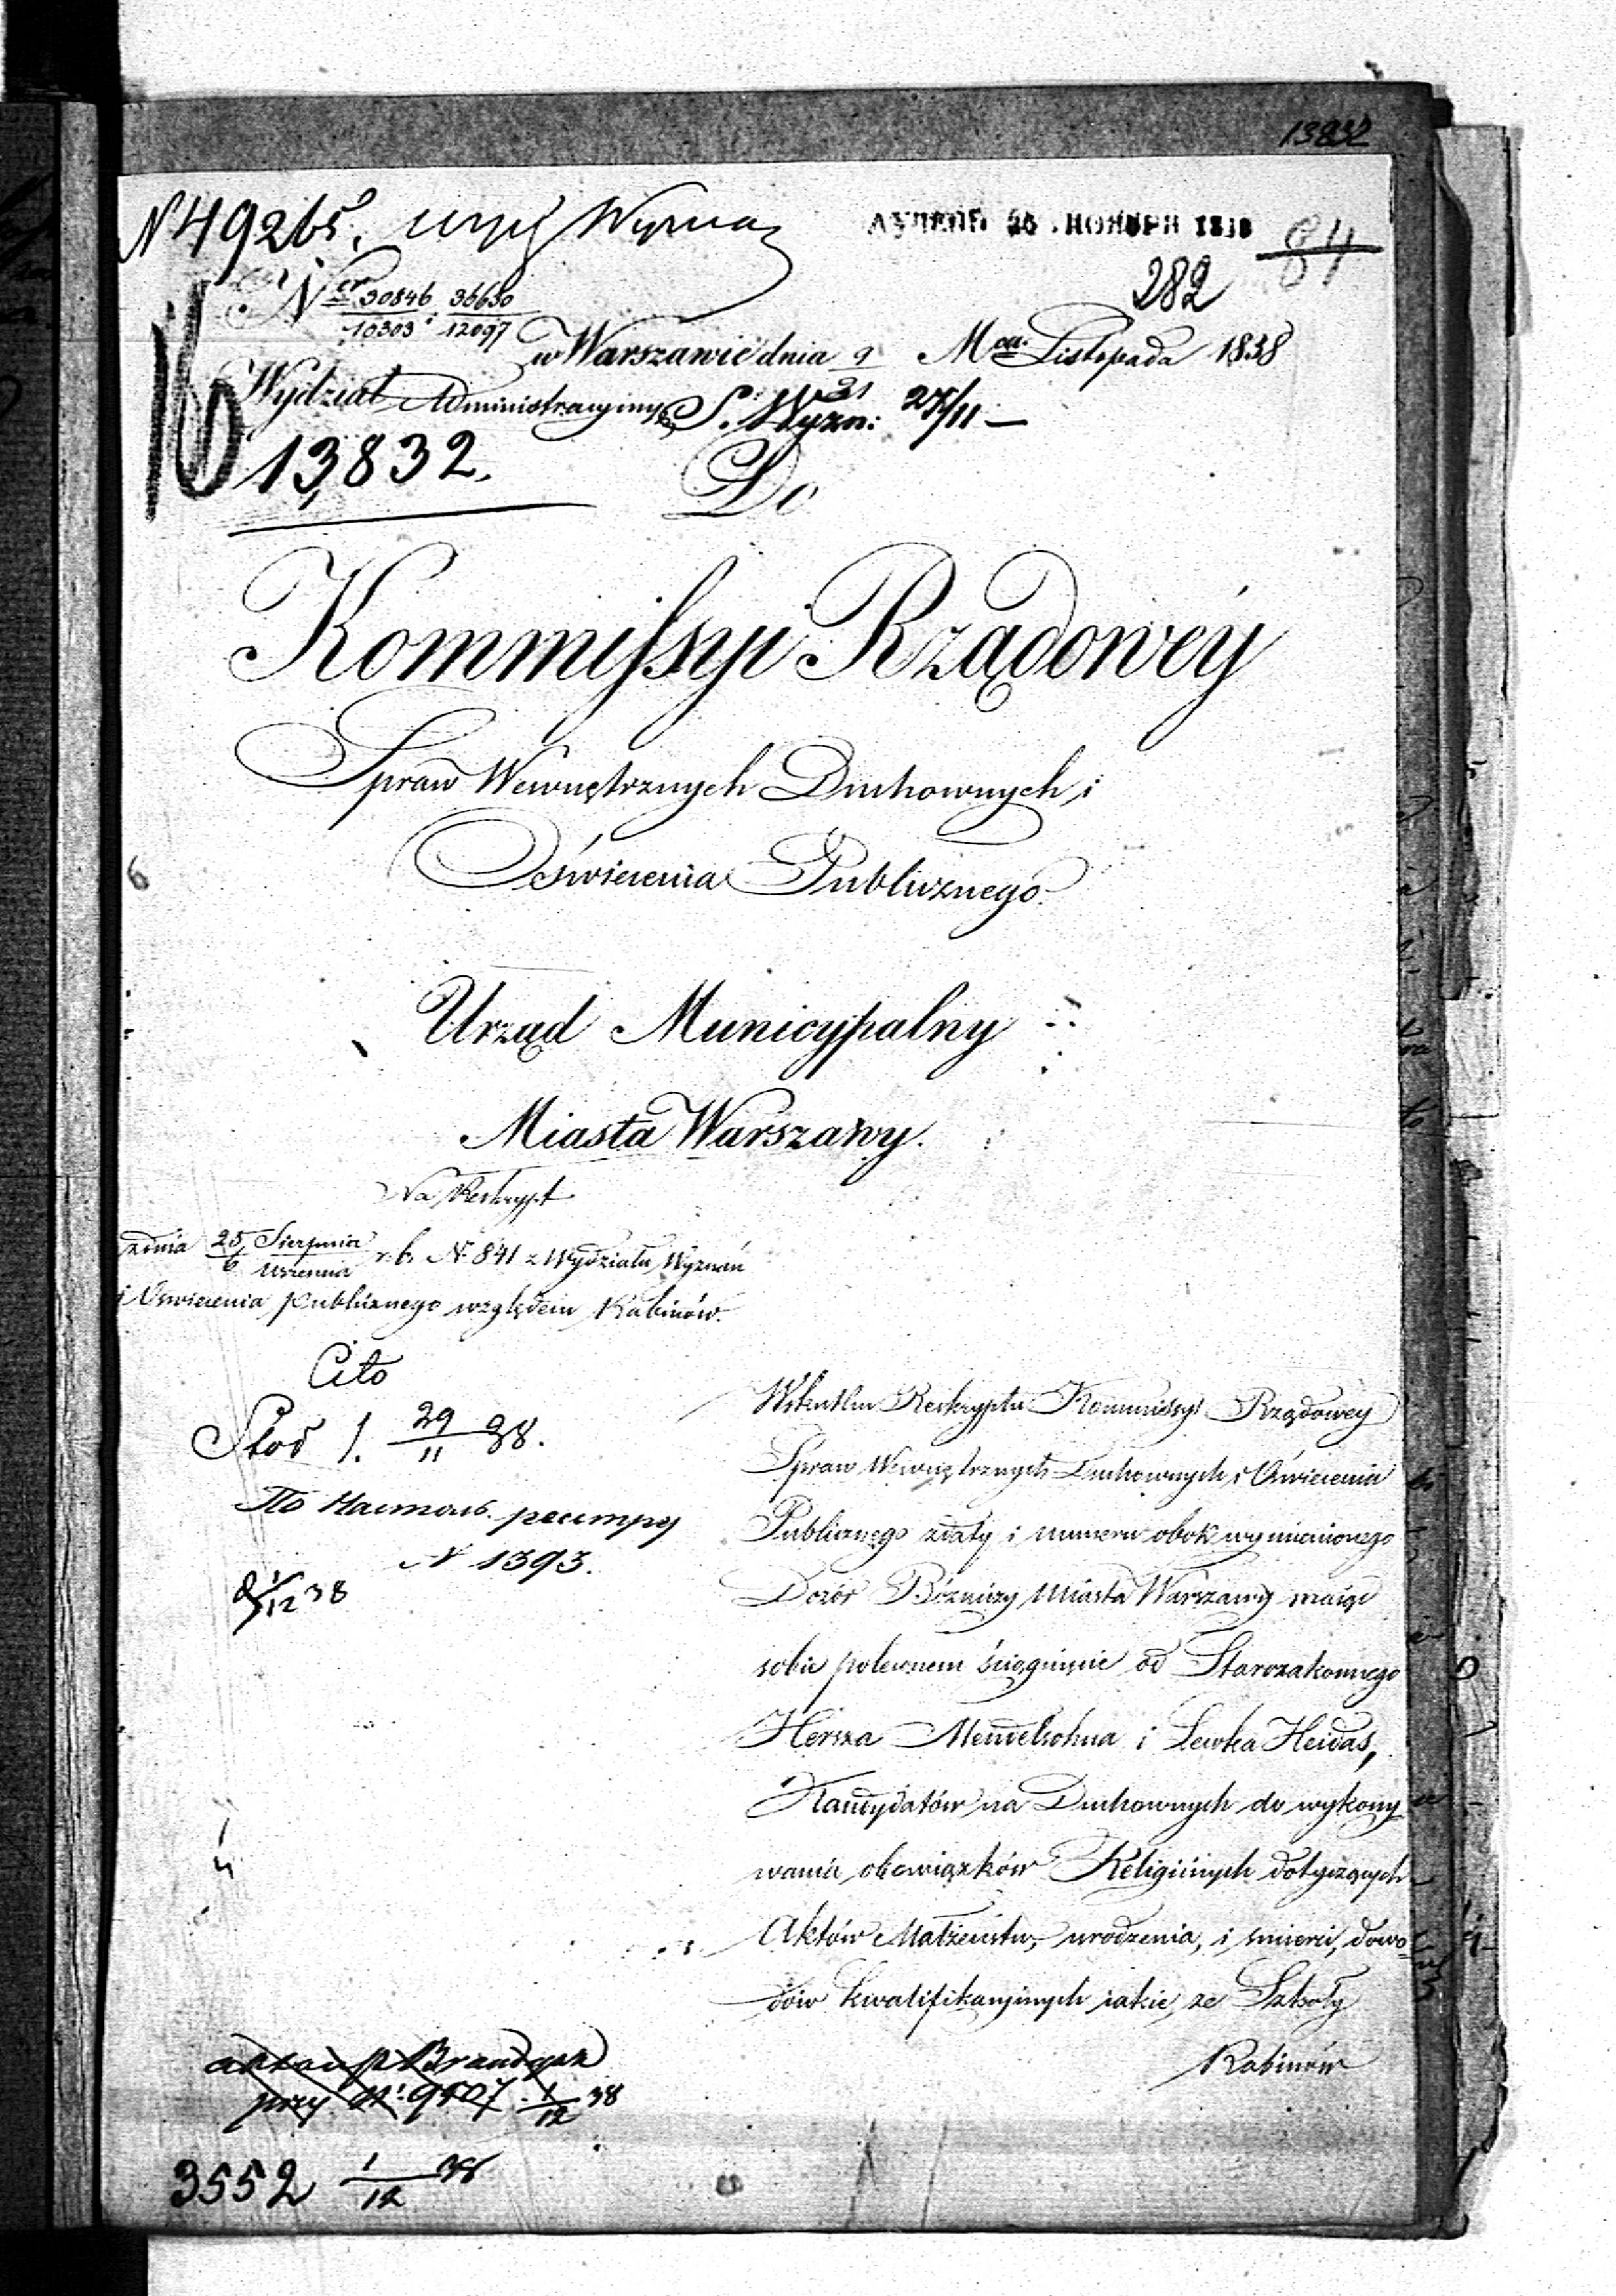 13832
N 49265.
НОЯБРЯ
84
282
N 30846 36630
10303 12097
w Warszawie dnia 9 Mca Listopada 1838
21
Wydział Administracyjny S. Wyzn: 27/11 —
13,832.
Do
Kommissyi Rządowey
Spraw Wewnętrznych Duchownych i
Oświecenia Publicznego
6
Urząd Municypalny
Miasta Warszawy.
Na Reskrypt
z dnia 25 Sierpnia r. b. N. 841 z Wydziału Wyznań
6 Wrzesnia
i Oswiecenia Publicznego względem Rabinów.
Cito
29
11 38.
По
N 1393.
12 38
Wskutku Reskryptu Kommissyi Rządowey
Spraw Wewnętrznych Duchownych i Oświecenia
Publicznego z daty i numeru obok wymienionego
Dozór Bóżniczy Miasta Warszawy maiąc
sobie poleconem ściągnięcie od Starozakonnego
Hersza Mendelsohna i Lewka Heidas,
Kandydatów na Duchownych do wykony
wania obowiązków Religiinych dotyczących
Aktów Małżeństw, urodzenia, i smierci, dowo=
dów kwalifikacyinych iakie ze Szkoły
Rabinów
przy N: 9507 1/12 38
3552 1/12 38